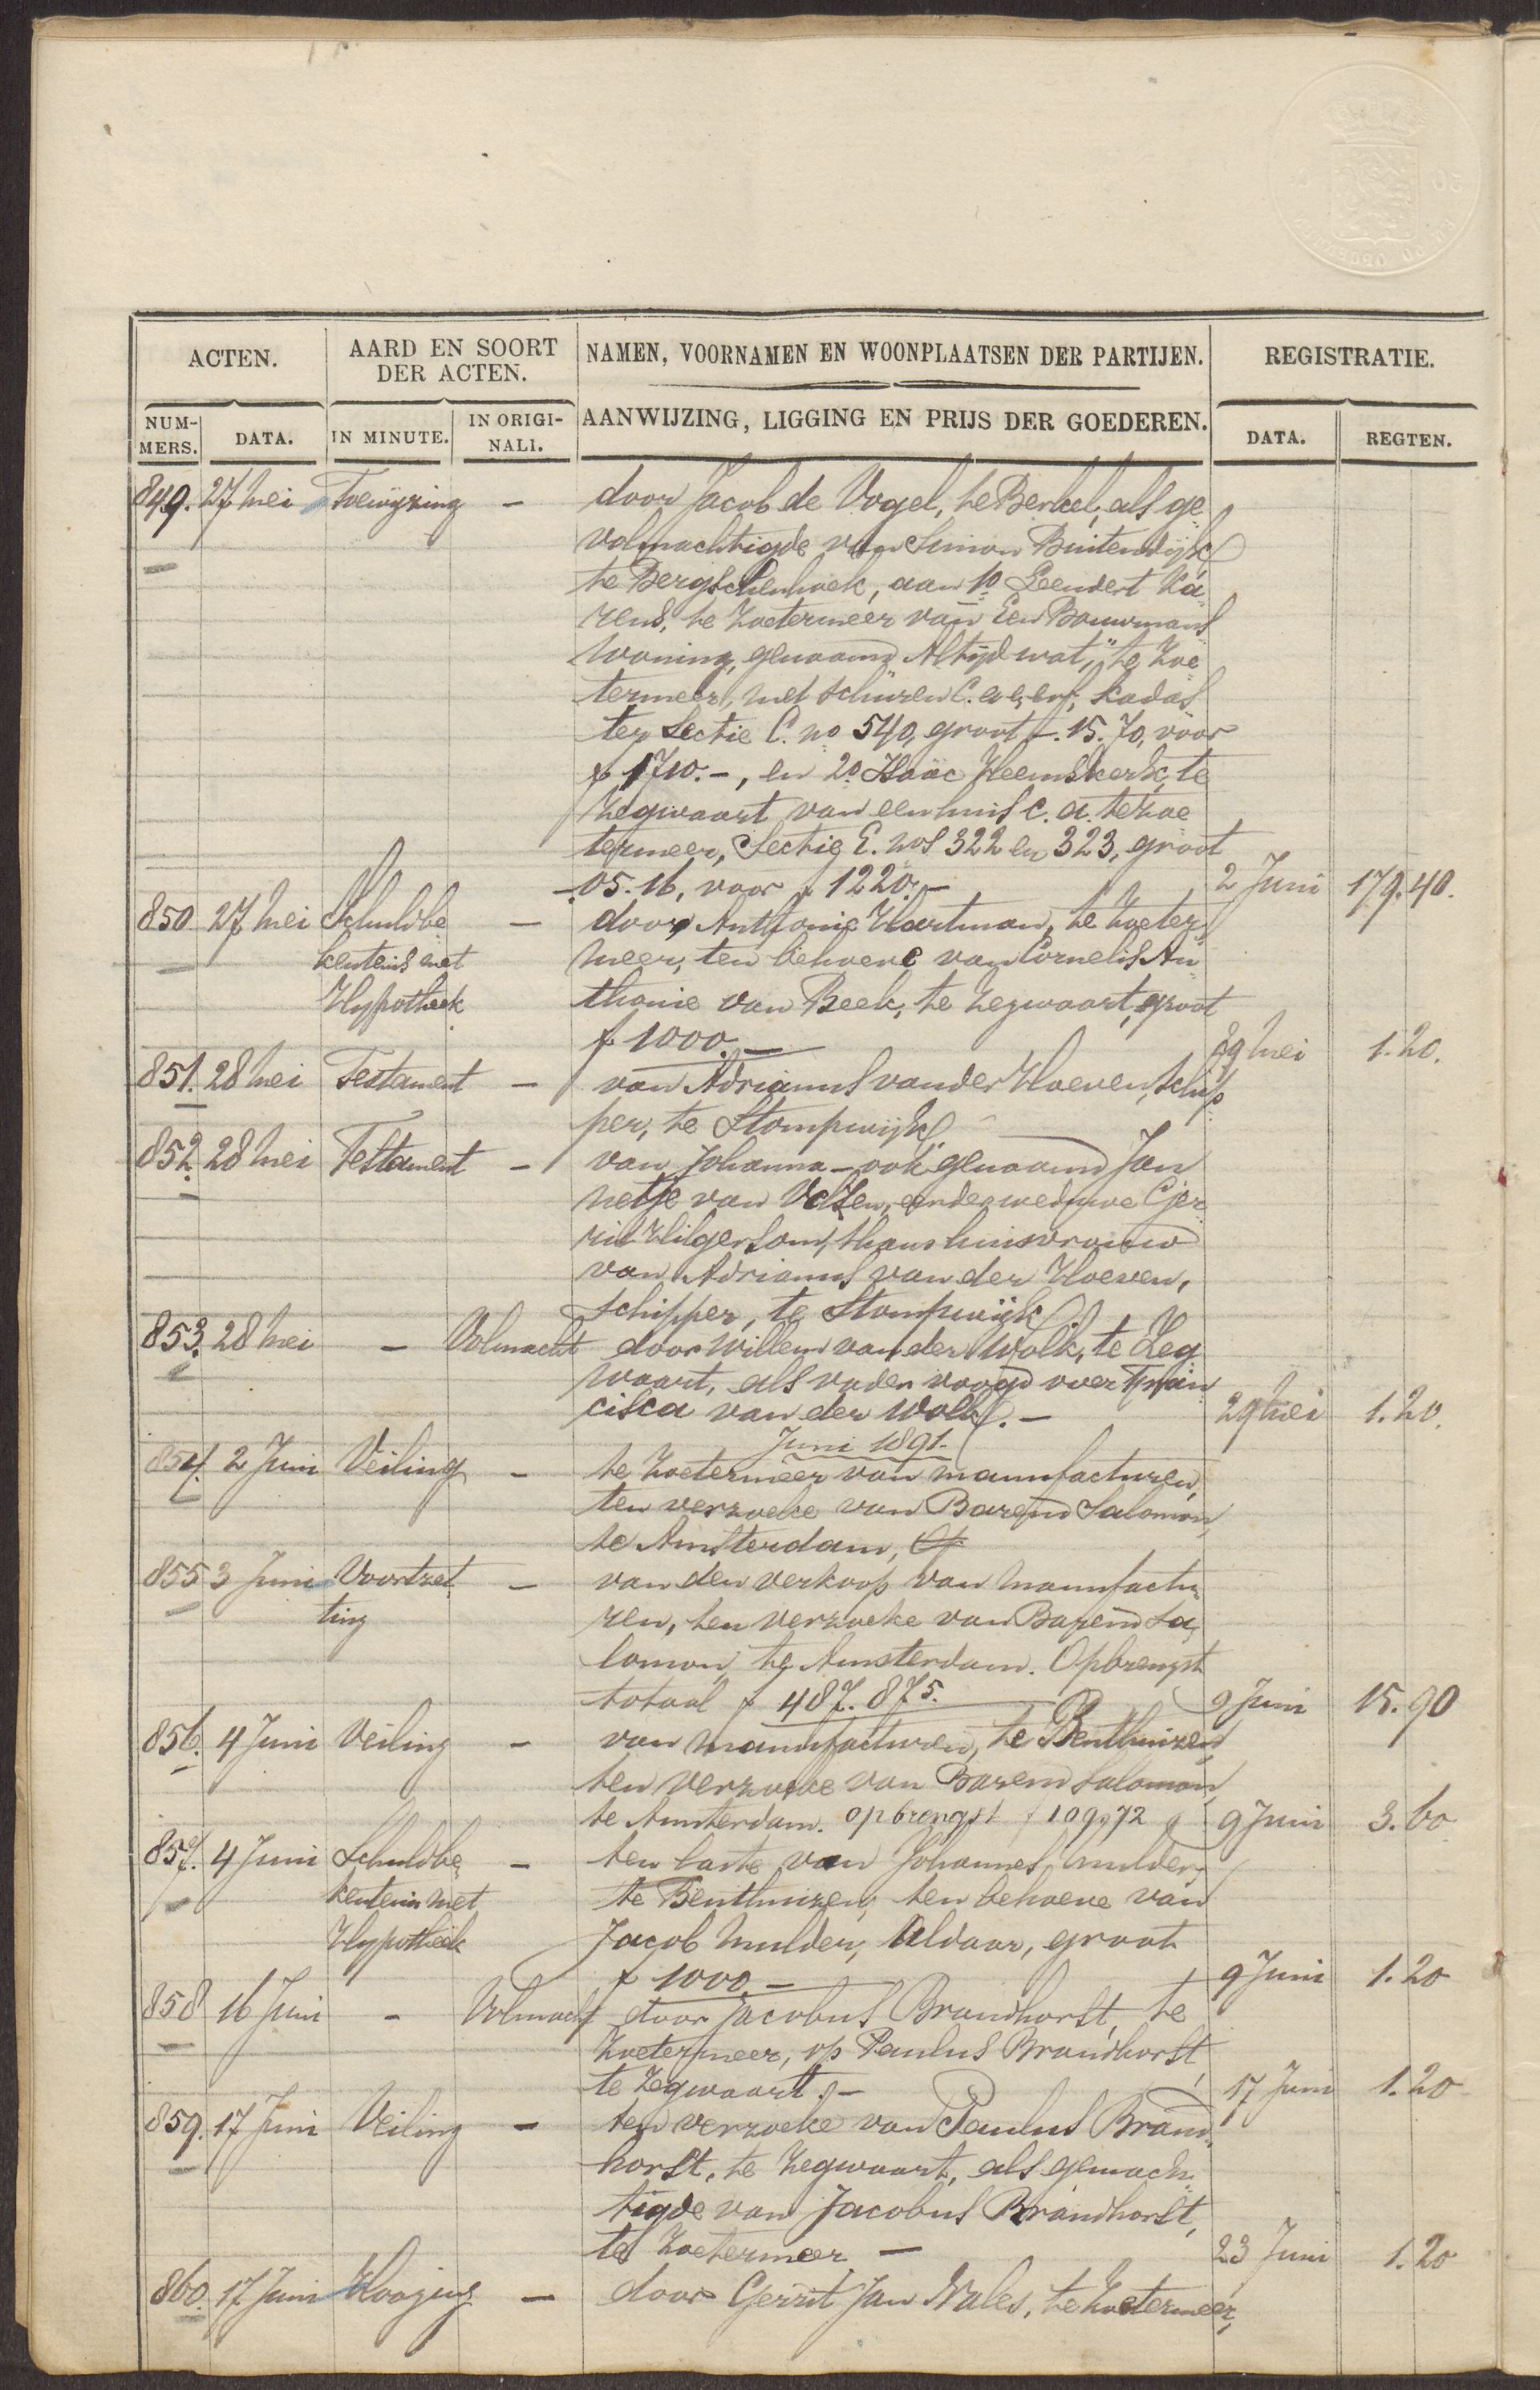 ACTEN.
AARD EN SOORT
DER ACTEN.
NAMEN, VOORNAMEN EN WOONPLAATSEN DER PARTIJEN.
REGISTRATIE.
NUM-
MERS.
DATA.
IN MINUTE.
IN ORIGI-
NALI.
AANWIJZING, LIGGING EN PRIJS DER GOEDEREN.
DATA.
REGTEN.
849. 27 Mei Toewijzing - door Jacob de Vogel, te Berkel, als ge
volmachtigde van Simon Buitendijk
te Bergschenhoek, aan 1o Leendert Ka
rens, te Zoetermeer van Een Bouwmans
woning, genaamd Altijd wat," te Zoe
termeer, met schuren c.a., erf, Kadas
ter Sectie C. no 540, groot -. 15. 70, voor
f 1710.-, en 2o Isaäc Heemskerk, te
Zegwaart van een huis c. a. te Zoe
termeer, Sectie E. nos 322 en 323, groot
-.05.16, voor f 1220.- 2 Juni 179.40.
850 27 Mei Schuldbe - door Anthonie Hartman, te Zoeter
kentenis met meer, ten behoeve van Cornelis An
Hypotheek thonie van Beek, te Zegwaart, groot
f 1000.- 29 Mei 1.20.
851. 28 Mei Testament - van Adrianus van der Hoeven, schip
per, te Stompwijk.
852. 28 Mei Testament - van Johanna - ook genaamd Jan
netje van Velzen, eerder weduwe Ger
rit Hilgersom, thans huisvrouw
van Adrianus van der Hoeven,
schipper, te Stompwijk.
853. 28 Mei - Volmacht door Willem van der Wolk, te Zeg
waart, als vader voogd over Fran
cisca van der Wolk. - 29 Mei 1.20.
Juni 1891.
854. 2 Juni Veiling - te Zoetermeer van manufacturen,
ten verzoeke van Barend Salomon,
te Amsterdam,
855 3 Juni Voortzet - van den verkoop van manufactu
ting ren, ten verzoeke van Barend Sa
lomon, te Amsterdam. Opbrengst
totaal f 487. 875. 9 Juni 15.90
856. 4 Juni Veiling - van manufacturen, te Benthuizen,
ten verzoeke van Barend Salomon,
te Amsterdam. opbrengst f 109,72 9 Juni 3.60
857. 4 Juni Schuldbe - ten laste van Johannes Mulder,
kentenis met te Benthuizen, ten behoeve van
Hypotheek Jacob Mulder, aldaar, groot
f 1000.- 9 Juni 1.20
858 16 Juni - Volmacht door Jacobus Brandhorst, te
Zoetermeer, op Paulus Brandhorst,
te Zegwaart. - 17 Juni 1.20
859. 17 Juni Veiling - ten verzoeke van Paulus Brand
horst, te Zegwaart, als gemach
tigde van Jacobus Brandhorst,
te Zoetermeer - 23 Juni 1.20
860. 17 Juni Hooging - door Gerrit Jan Wales, te Zoetermeer,